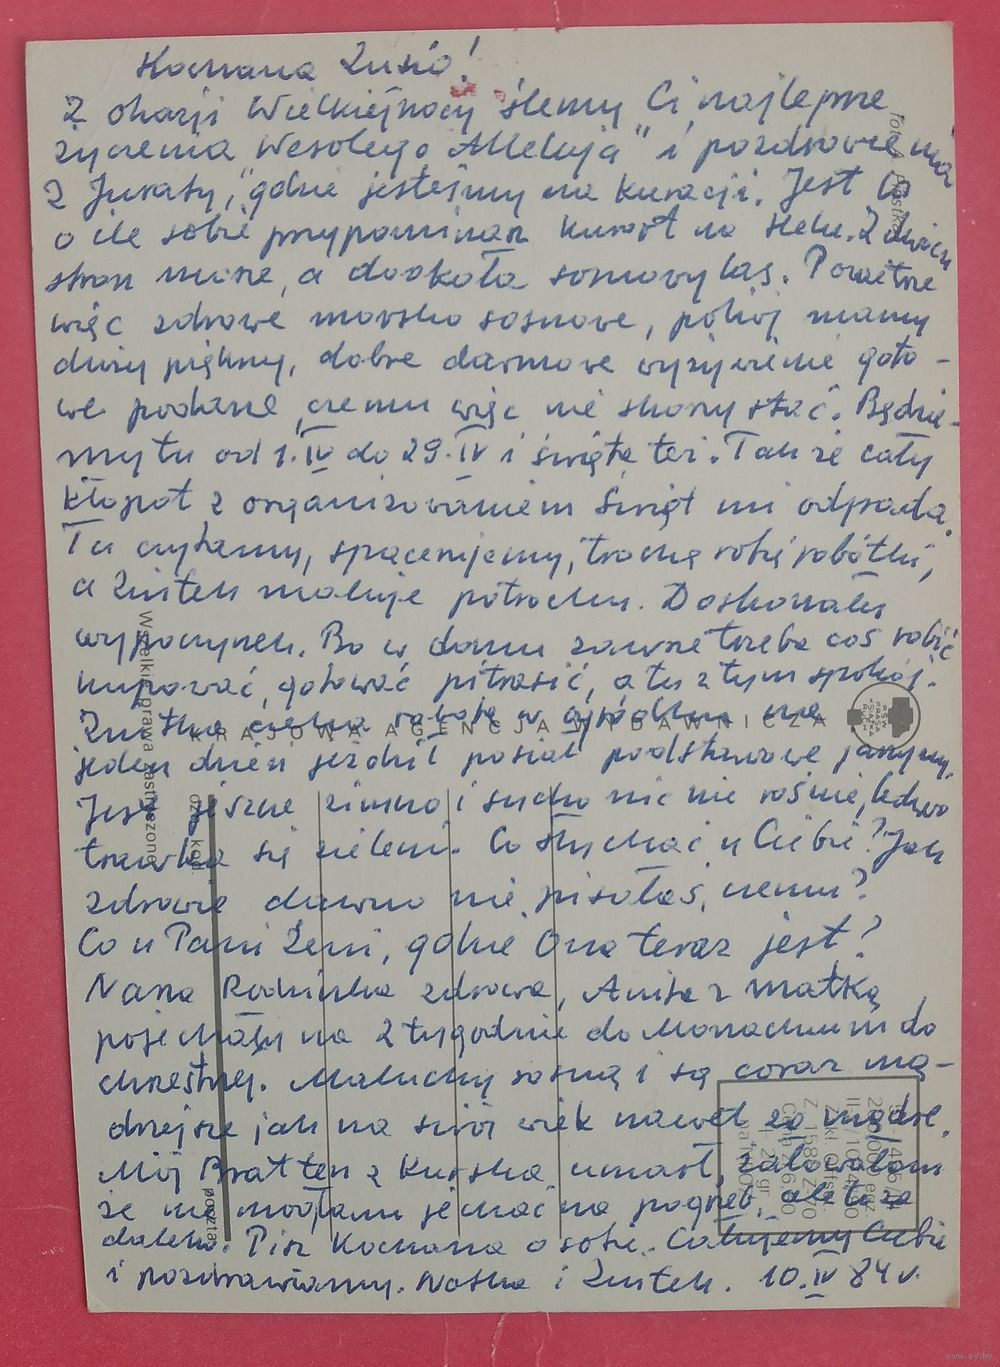 Kochana Zusio!
Z okazji Wielkiejnocy ślemy Ci najlepsze
życzenia Wesołego Alleluja" i pozdrowienia
z Juraty, "gdzie jesteśmy na kuracji. Jest to
o ile sobie przypominasz kurort na Helu. Z dwóch
stron morze, a dookoła sosnowy las. Powietrze
więc zdrowe morsko sosnowe, pokój mamy
duży piękny, dobre darmowe wyżywienie goto-
we podane, czemu więc nie skorzystać. Będzie-
my tu od 1.IV do 29.IV i święta też. Tak że cały
kłopot z organizowaniem Świąt mi odpada.
Tu czytamy, spacerujemy, trochę robię robótki,
a Zusteh maluje potrochu. Doskonały
wypoczynek. Bo w domu zawsze trzeba coś robić
kupować, gotować pitrasić, a tu z tym spokój.
w ogródku na
jeden dzień jeździł posiał podstawowe jarzyny.
Jest jeszcze zimno i sucho nic nie rośnie, ledwo
trawka się zieleni. Co słychać u Ciebie? Jak
zdrowie dawno nie pisałaś, czemu?
Co u Pani Zeni, gdzie Ona teraz jest?
Nasza Rodzinka zdrowa, Anita z matką
pojechały na 2 tygodnie do Monachium do
chrzestnej. Maluchy rosną i są coraz mą-
drzejsze jak na swój wiek nawet za mądre.
Mój Brat ten z Kurska umarł, żałowałam
że nie mogłam jechać na pogrzeb, ale to za
daleko. Pisz Kochana o sobie. Całujemy Ciebie
i pozdrawiamy. Natka i Zusteh. 10.IV 84 r.
KRAJOWA AGENCJA WYDAWNICZA
Wszelkie prawa zastrzeżone
poczta
RSW
PRASA
KSIĄŻKA
RUCH
www.ay.by